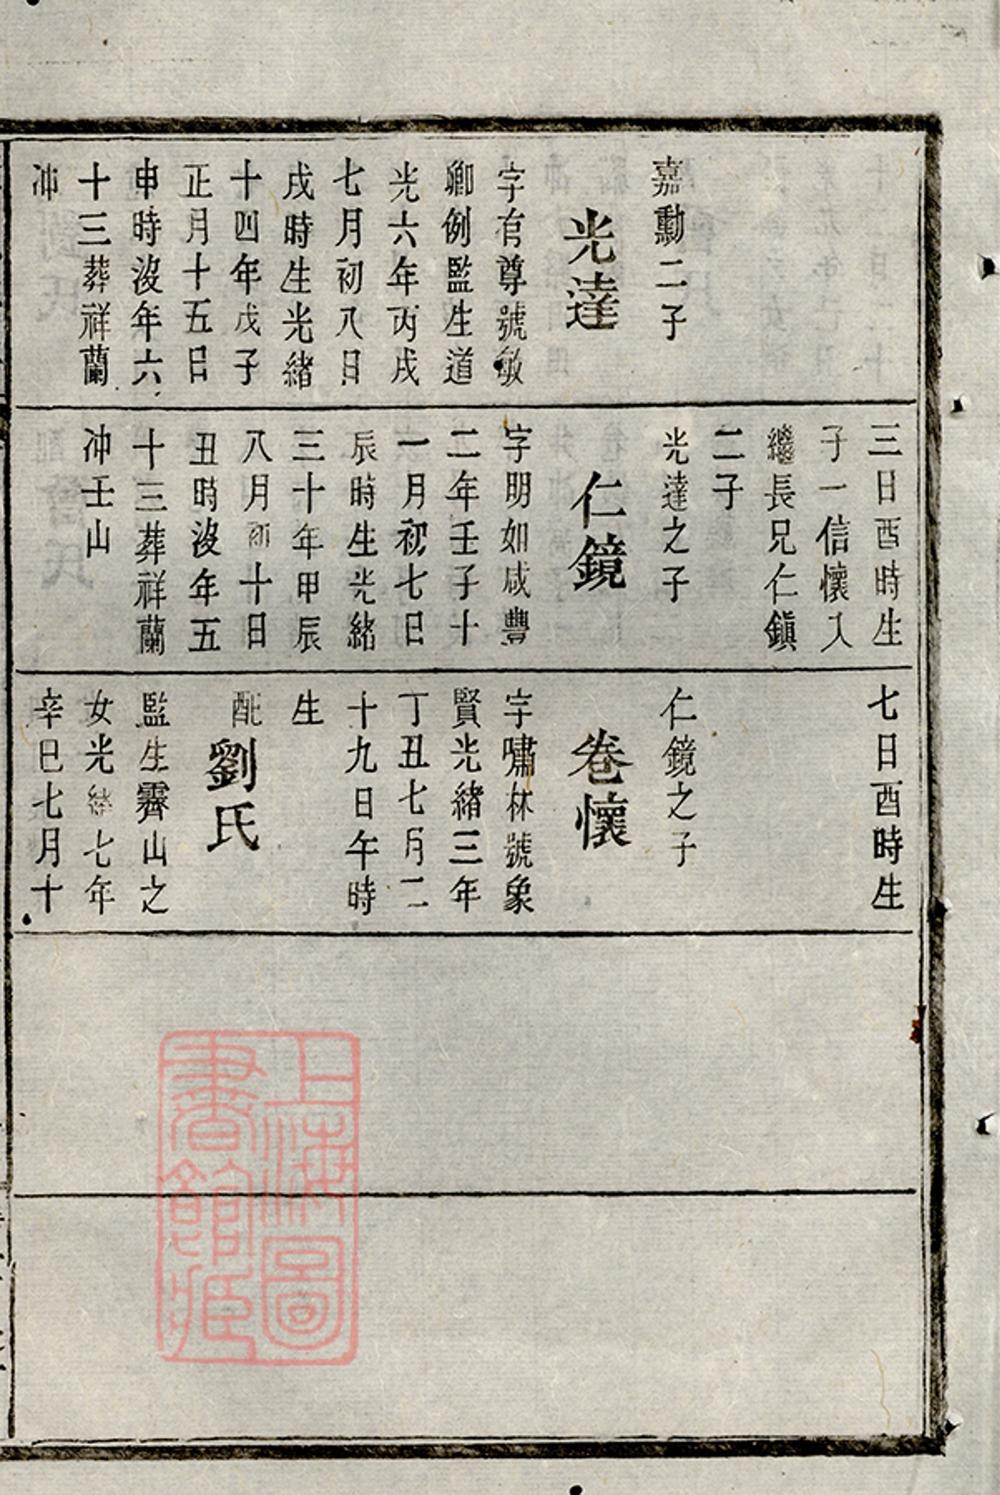 嘉勳二子
光達
字有尊號敏
卿例監生道
光六年丙戌
七月初八日
戌時生光緒
十四年戊子
正月十五日
申時沒年六
十三葬祥蘭
冲
三日酉時生
子一信懷入
繼長兄仁鎮
二子
光達之子
仁鏡
字明如咸豐
二年壬子十
一月初七日
辰時生光緒
三十年甲辰
八月初十日
丑時沒年五
十三葬祥蘭
冲壬山
七日酉時生
仁鏡之子
卷懷
字嘯林號象
賢光緒三年
丁丑七月二
十九日午時
生
配
劉氏
監生霽山之
女光緒七年
辛巳七月十
上海圖
書館藏